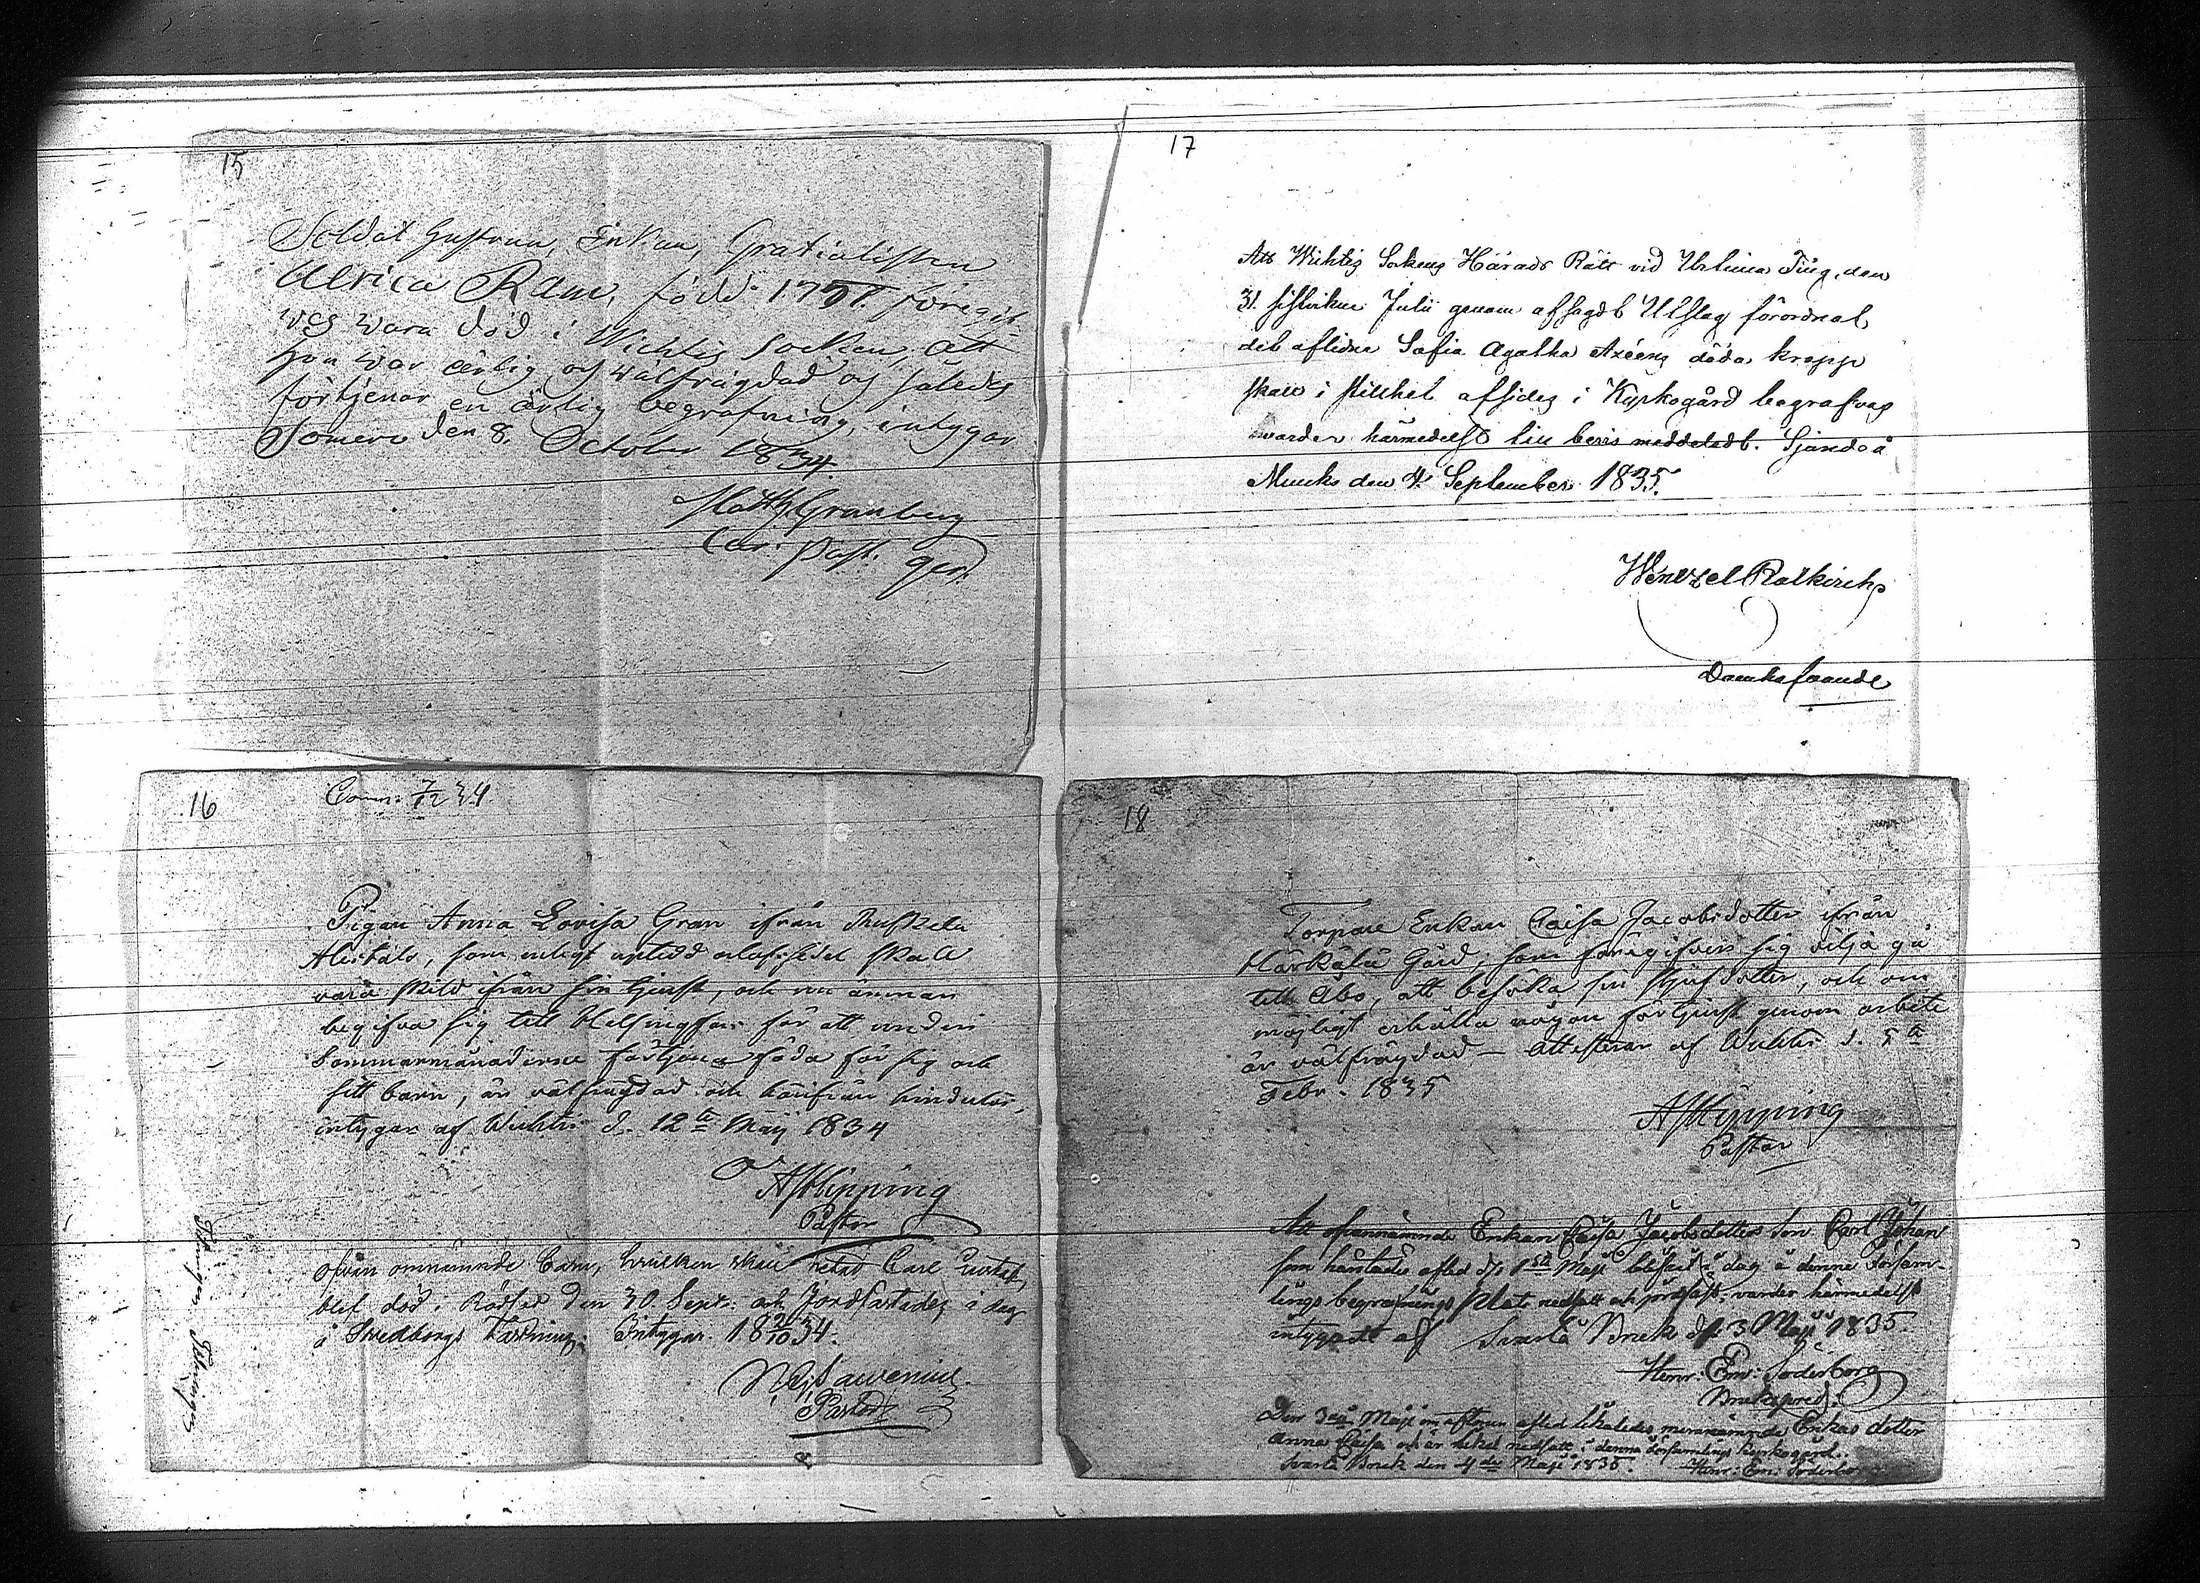 15
Soldat Hustrun, Enkan, Gratialisten
Ulrica Ram, född 1751. föregif-
ves wara död i Wichtis Socken, att
hon war ärlig och wälfrägdad och således
förtjenar en ärlig begrafning, intygar
Somero den 8. October 1834.
Matth. Granberg
Cap. Past. Adj.
16
Comm: 7/12 34
Pigan Anna Lovisa Gran ifrån
Alistalo, som enligt uptedd orlofssedel skall
vara skild ifrån sin tjenst, och nu ämnar
begifva sig till Helsingfors för att under
Sommarmånaderne förtjena föda för sig och
sitt barn, är välfrägdad och härifrån hinderlös,
intygar af Wichtis d. 12te Maij 1834
AJHipping
Pastor
Ofvan omnämnde Barn, hvilken skall hetat Carl Gustaf,
blef död i Rödsed den 30. Sept: och Jordfästades i dag
å Sveaborgs Fästning. Intygar 18 2/10 34.
Pastor
17
Att Wichtis Sockens Härads Rätt vid Urtima Ting, den
31. sistvikne Julii genom afsagdt Utslag förordnat,
det aflidne Sofia Agatha Axéens döda kropp
skall i stillhet afsides i Kyrkogård begrafvas
warder härmedelst till bevis meddeladt. Sjundeå
Munks den 4. September 1835.
Wentzel Rotkirch
Domhafvande
18
Torpare Enkan Caisa Jacobsdotter ifrån
Härkälä Gård, som föregifver sig vilja gå
till Åbo, att besöka sin styfdotter, och om
möjligt erhålla någon förtjenst genom arbete
är välfrägdad – attesterar af Wichtis d. 5te
Febr. 1835
AJHipping
Pastor
Att ofvannämnde Enkan Caisa Jacobsdotters son Carl Johan
som härstädes afled d. 1sta Maji blifvit i dag å denne Församl-
lings begrafnings plats nedsatt och jordfäst, varder härmedelst
intygadt af Svartå Bruk d. 3 Maji 1835.
Henr: Em: Söderborg
Brukspred.
Den 3dje Maji om aftonen afled likaledes mernämnde Enkas dotter
Anna Caisa och är liket nedsatt i denna Församlings kyrkogård.
Svartå Bruk den 4de Maji 1835. Henr: Em: Söderborg